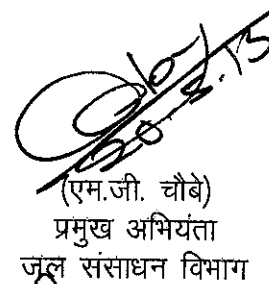 20.3.13
(एम.जी. चौबे)
प्रमुख अभियंता
जल संसाधन विभाग